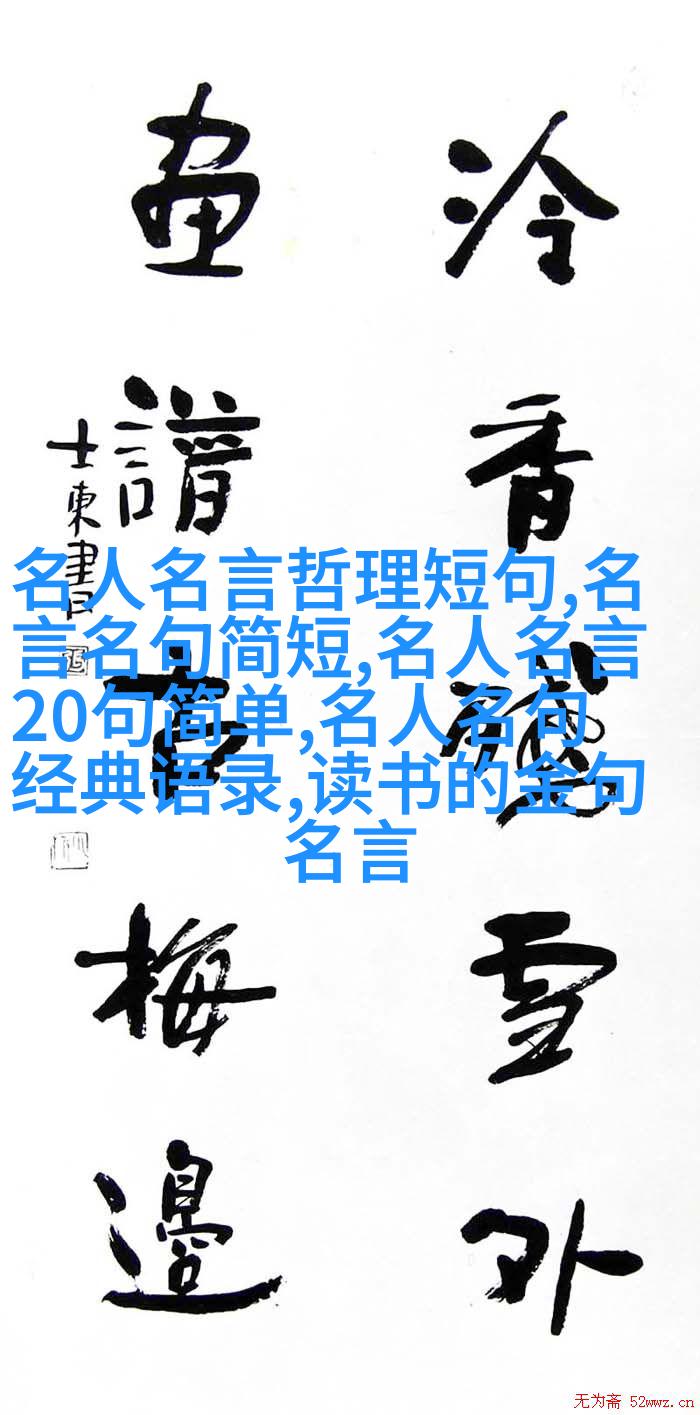 泠香雪外
畫譜古梅邊
士東書
名人名言哲理短句,名
言名句简短,名人名言
20句简单,名人名句
经典语录,读书的金句
名言
无为斋 52wwz.cn